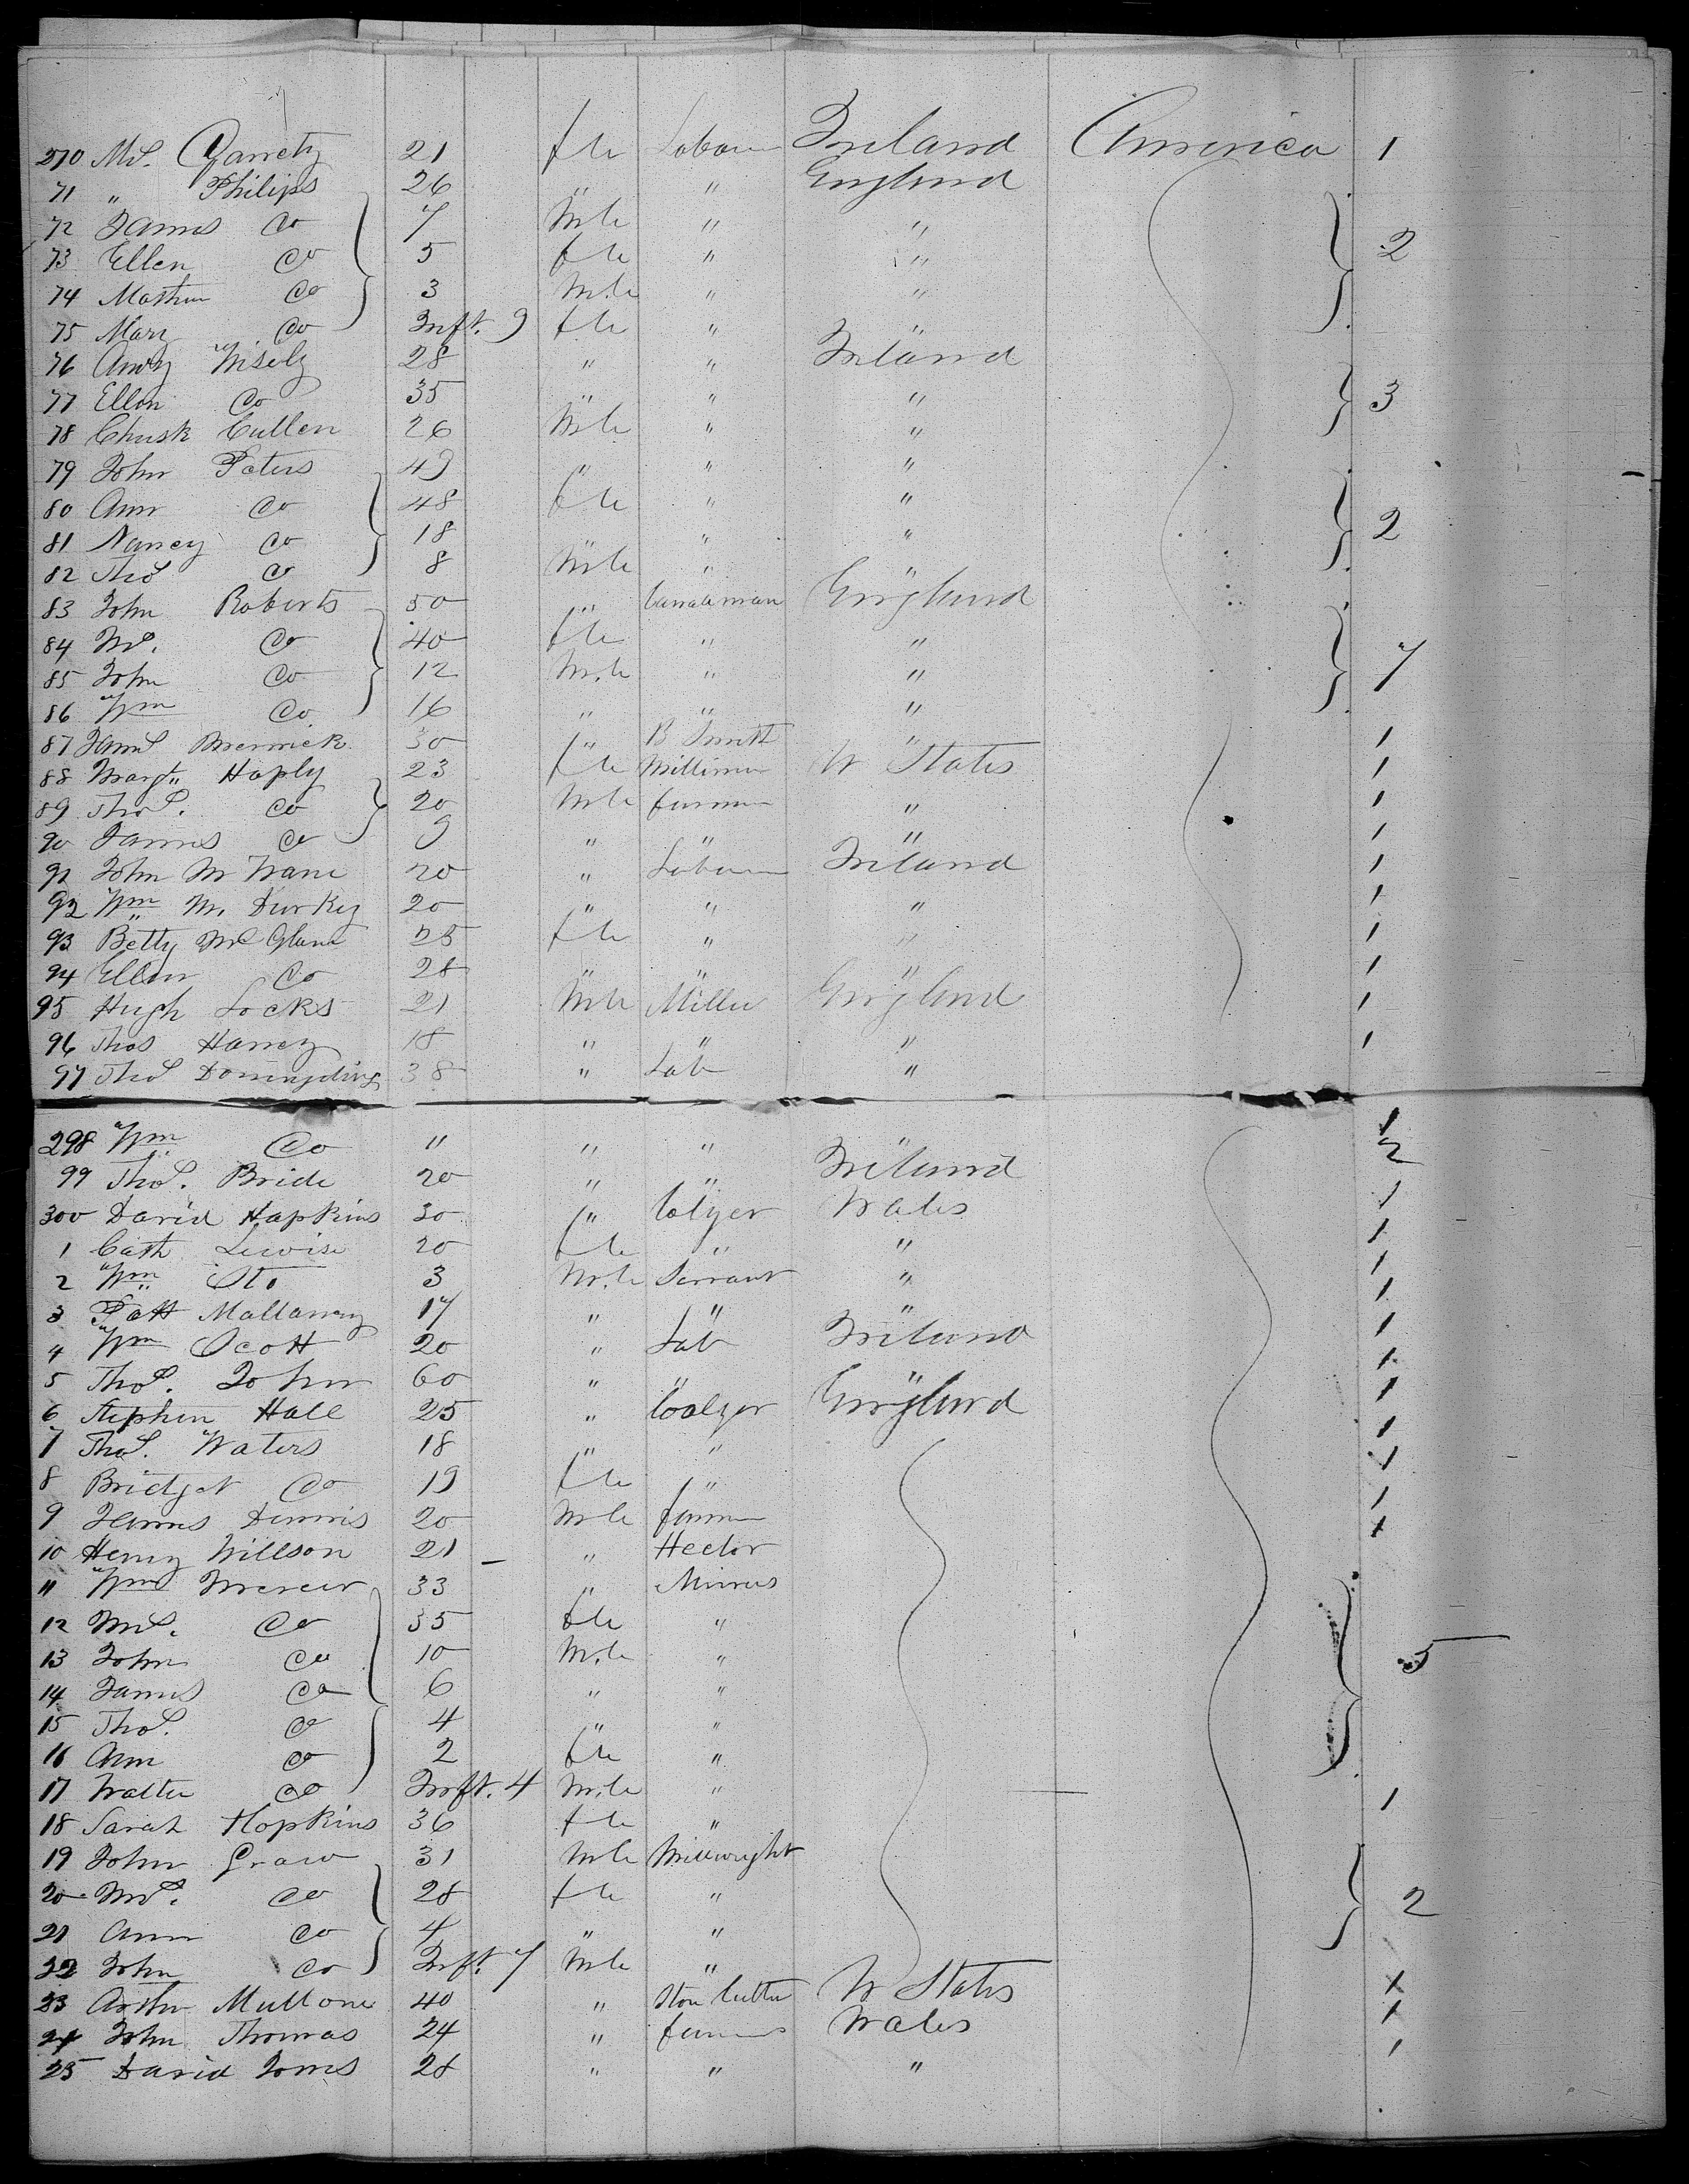 270 Ms. Garrety 21 fle Labour Ireland America 1
71 " Philips 26 " " England
72 James Do 7 Mle " "
73 Ellen Do 5 fle " " 2
74 Do 3 Mle " "
75 Mary Do Inft. 9 fle " "
76 28 " " Ireland
77 Ellen Do 35 " " " 3
78 Cullen 26 Mle " "
79 John Peters 49 " " "
80 Ann Do 48 fle " "
81 Nancy Do 18 " " " 2
82 Thos Do 8 Mle " "
83 John Roberts 50 " England
84 Ms. Do 40 fle " "
85 John Do 12 M.le " " 7
86 Wm Do 16 " " "
87 30 " B Smith " 1
88 Margt " Haply 23 fle W States 1
89 Thos. Do 20 Mle farmer " 1
90 James Do 9 " " " 1
91 John Mc 20 " Labour Ireland 1
92 Wm M. Durkey 20 " " " 1
93 Betty Mc Glane 25 fle " " 1
94 Ellen Do 28 " " " 1
95 Hugh Locks 21 Mle Miller England 1
96 Thos Harvey 18 " " " 1
97 Thos 38 " Lab "
298 Wm Do " " " " 1
99 Thos. Bride 20 " " Ireland 2
300 David Hapkins 30 " Colyer Wales 1
1 Cath Lewise 20 fle " " 1
2 Wm Do 3 M.le Servant " 1
3 Patt 17 " " " 1
4 Wm Scott 20 " Lab Ireland 1
5 Thos. John 60 " " " 1
6 Stephen Hall 25 " Coalyer England 1
7 Thos. Waters 18 " " 1
8 Bridget Do 19 fle " 1
9 James Dennis 20 Mle farmer 1
10 Henry Willson 21 " Hector 1
11 Wm Mercer 33 " Miners
12 Ms. Do 35 fle "
13 John Do 10 M.le " 5
14 James Do 6 " "
15 Thos. Do 4 " "
16 Ann Do 2 fle "
17 Walter Do Inft. 4 M.le "
18 Sarah Hopkins 36 fle " 1
19 John Graw 31 Mle Millwright
20 Ms. Do 28 fle " 2
21 Ann Do 4 " "
22 John Do Inft. 7 Mle "
23 Arthr Mullone 40 " Stone Cutter W States 1
24 John Thomas 24 " farmers Wales 1
25 David Jones 28 " " " 1